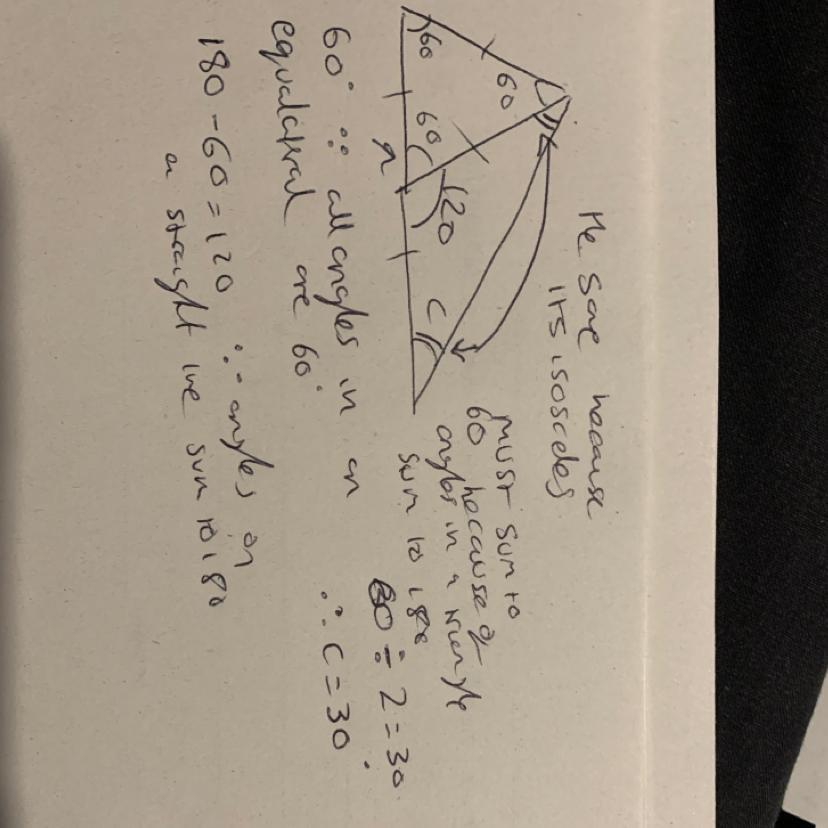 The same because
its isosceles
60
60
60
120
c
must sum to
60 because of
angles in a triangle
sum to 180
60 ÷ 2 = 30.
∴ C = 30
60° ∵ all angles in an
equalateral are 60°
180 - 60 = 120 ∵ angles on
a straight line sum to 180